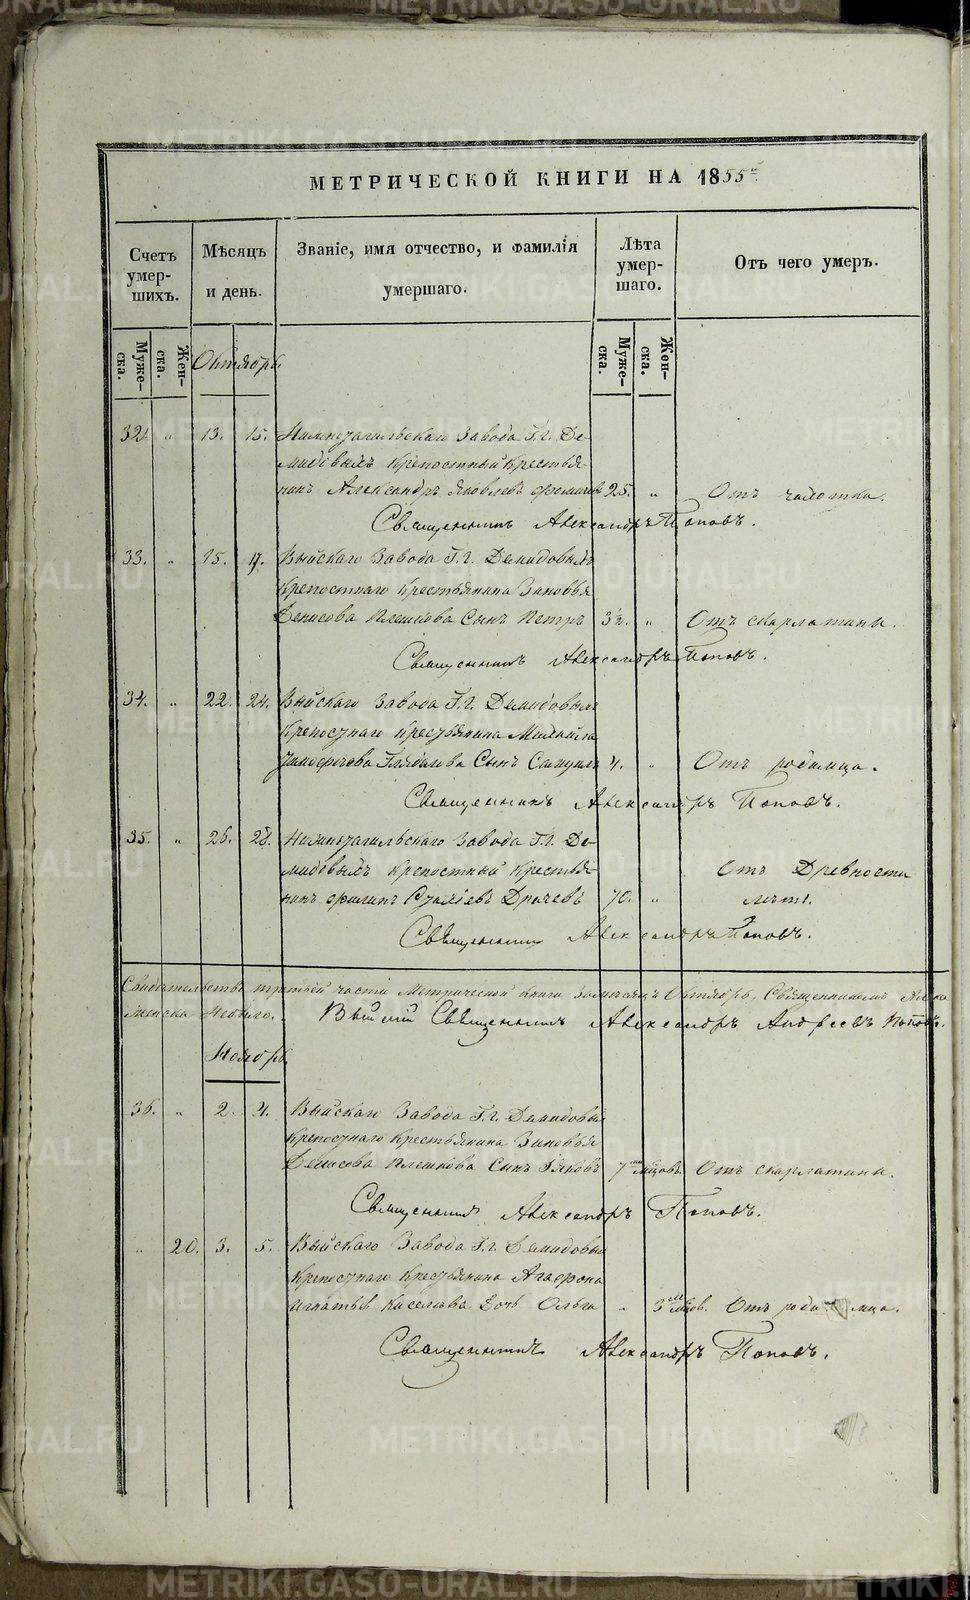 МЕТРИЧЕСКОЙ КНИГИ НА 1855
Счетъ умершихъ.
Мѣсяцъ и день.
Званіе, имя отчество, и фамилія умершаго.
Лѣта умершаго.
Отъ чего умеръ.
Мужеска.
Женска.
Октябрь.
Мужеска.
Женска.
32. " 13. 15. Нижнетагильскаго Завода Г.г. Де-
мидовыхъ крепостный крестья-
нинъ Александръ Яковлевъ 25. " Отъ чахотки.
Священникъ Александръ Поповъ.
33. " 15. 17. Выйскаго Завода Г.г. Демидовыхъ
крепостнаго крестьянина Зиновья
Денисова Плешкова Сынъ Петръ 3½. " Отъ скарлатины.
Священникъ Александръ Поповъ.
34. " 22. 24. Выйскаго Завода Г.г. Демидовыхъ
крепостнаго крестьянина Михайла
Сынъ 4. " Отъ родимца.
Священникъ Александръ Поповъ.
35. " 26. 28. Нижнетагильскаго Завода Г.г. Де-
мидовыхъ крепостный крестья-
нинъ Филипъ 70. " Отъ Древности лѣтъ.
Священникъ Александръ Поповъ.
Свидѣтельствъ третьей части Метрической книги за мѣсяцъ Октябрь, Священникомъ
небыло. Выйскій Священникъ Александръ Андреевъ Поповъ.
Ноябрь
36. " 2. 4. Выйскаго Завода Г.г. Демидовыхъ
крепостнаго крестьянина Зиновья
Денисова Плешкова Сынъ Іаковъ 7 мѣсцовъ Отъ скарлатины.
Священникъ Александръ Поповъ.
" 20. 3. 5. Выйскаго Завода Г.г. Демидовыхъ
крепостнаго крестьянина Агафона
Игнатьева Киселева Дочь Ольга " 3 мѣсцов. Отъ родимца.
Священникъ Александръ Поповъ.
METRIKI.GASO-URAL.RU